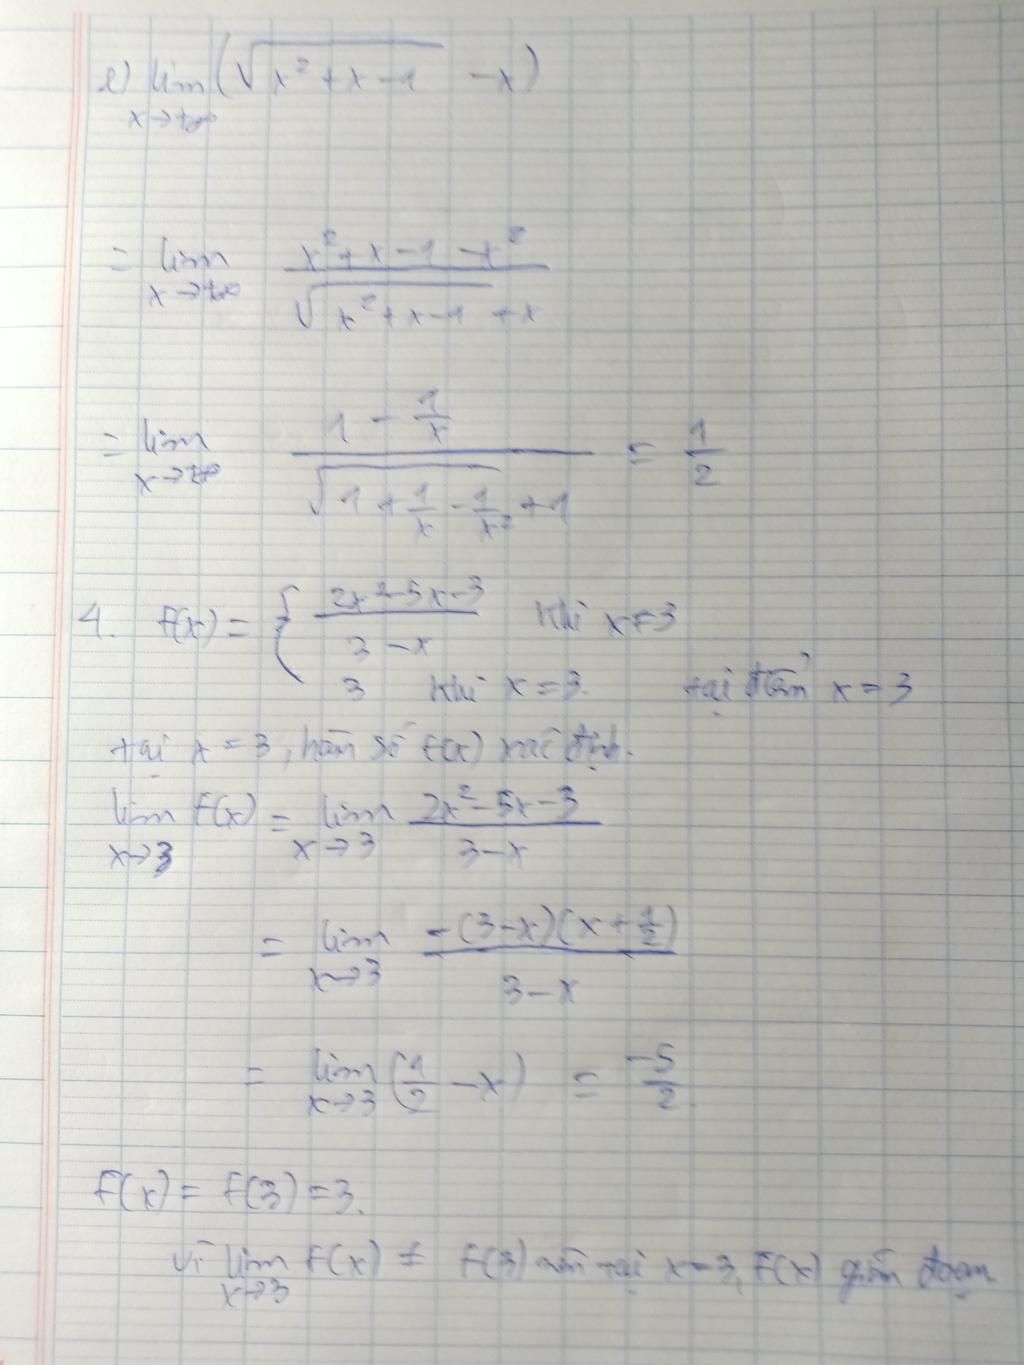 e) lim (√(x² + x - 1) - x)
x→+∞
= lim (x² + x - 1 - x²) / (√(x² + x - 1) + x)
x→+∞
= lim (1 - 1/x) / (√(1 + 1/x - 1/x²) + 1) = 1/2
x→+∞
4. f(x) = { (2x² - 5x - 3) / (3 - x) khi x ≠ 3
3 khi x = 3. tại điểm x = 3
tại x = 3, hàm số f(x) xác định.
lim f(x) = lim (2x² - 5x - 3) / (3 - x)
x→3 x→3
= lim -(3 - x)(x + 1/2) / (3 - x)
x→3
= lim (1/2 - x) = -5/2.
x→3
f(x) = f(3) = 3.
Vì lim f(x) ≠ f(3) nên tại x = 3, f(x) gián đoạn
x→3